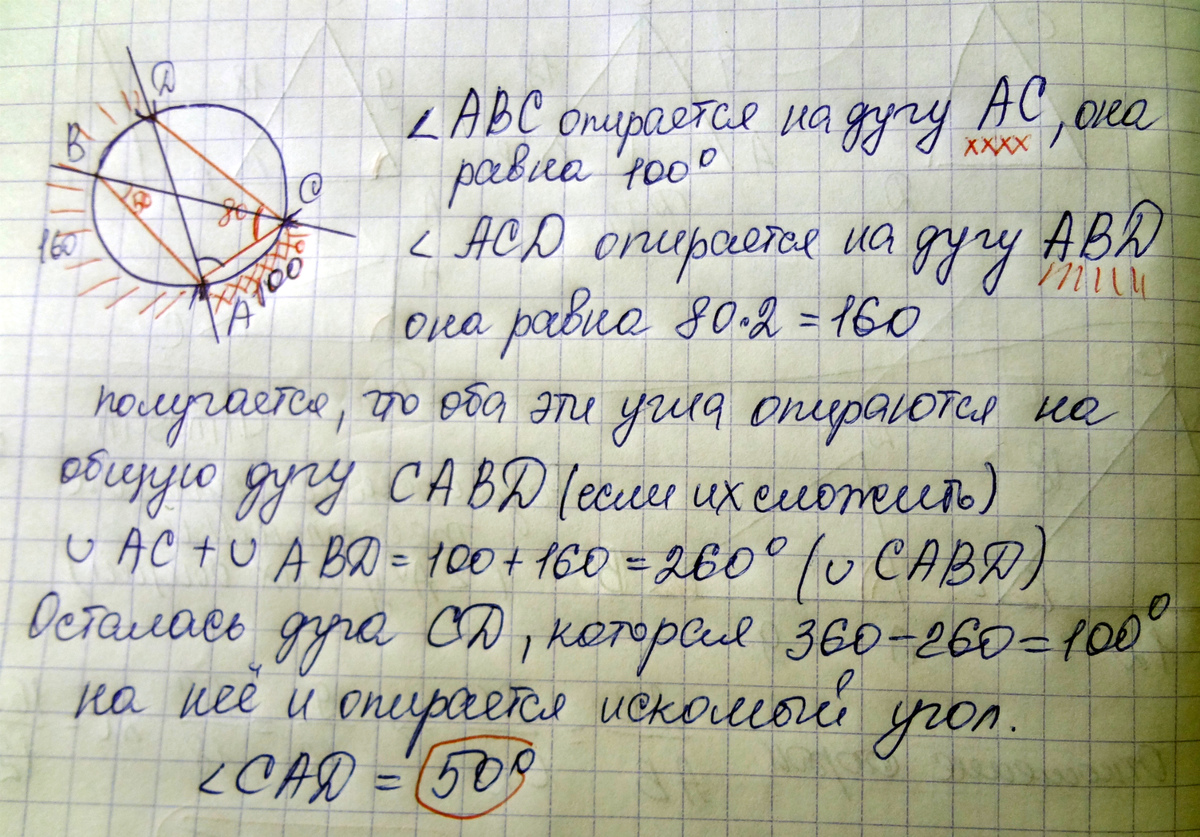 D
B
C
50
80
160
100
A
∠ABC опирается на дугу AC, она
равна 100°
∠ ACD опирается на дугу ABD
она равна 80·2=160
получается, что оба эти угла опираются на
общую дугу CABD (если их сложить)
∪ AC + ∪ ABD = 100+160=260° (∪ CABD)
Осталась дуга CD, которая 360-260=100°
на неё и опирается искомый угол.
∠CAD = 50°